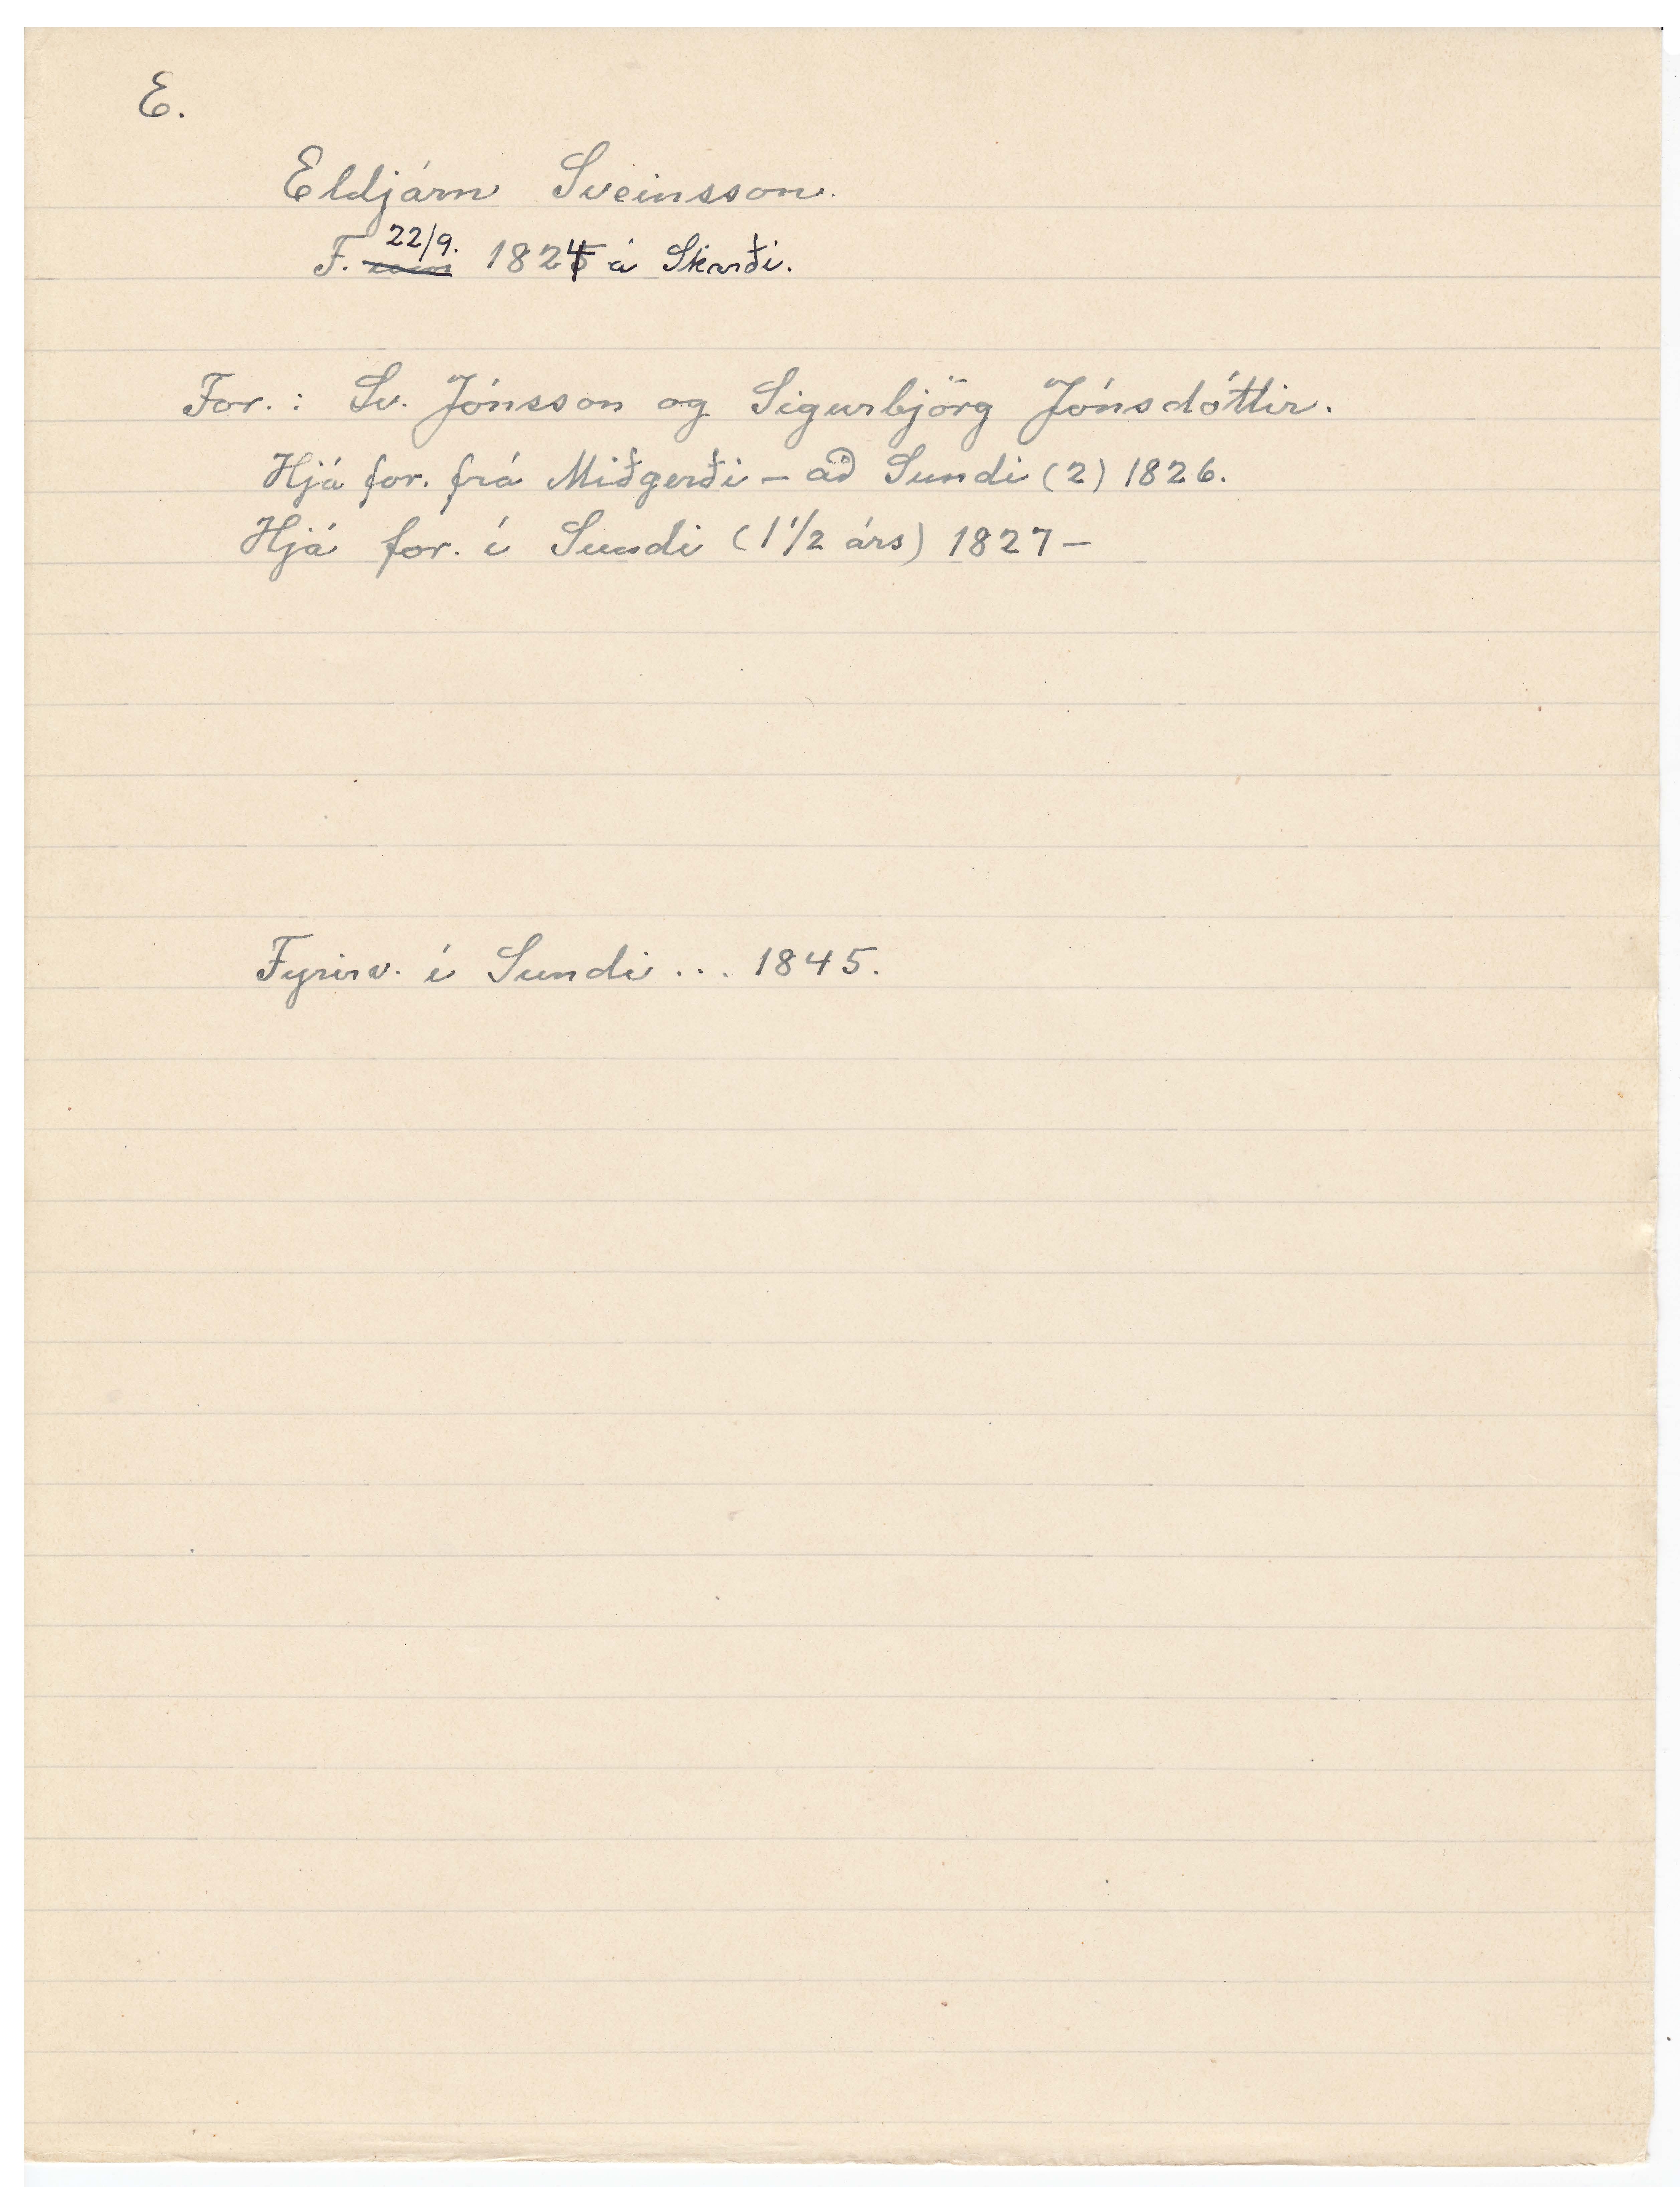 E.
Eldjárn Sveinsson.
F. 22/9. 1824 á Skarði.
For.: Sv. Jónsson og Sigurbjörg Jónsdóttir.
Hjá for. frá Miðgerði - að Sundi (2) 1826.
Hjá for. í Sundi (1 1/2 árs) 1827 -
Fyrirv. í Sundi ... 1845.